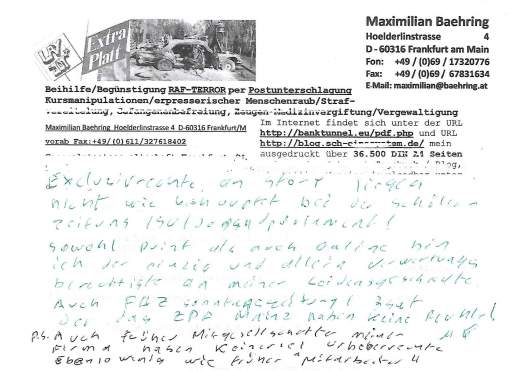 Extra
Platt
Maximilian Baehring
Hoelderlinstrasse 4
D - 60316 Frankfurt am Main
Fon: +49 / (0)69 / 17320776
Fax: +49 / (0)69 / 67831634
E-Mail: maximilian@baehring.at
Beihilfe/Begünstigung RAF-TERROR per Postunterschlagung
Kursmanipulationen/erpresserischer Menschenraub/Straf-
vereitelung, Gefangenenbefreiung, Zeugen-Medizinvergiftung/Vergewaltigung
Maximilian Baehring Hoelderlinstrasse 4 D-60316 Frankfurt/M
vorab Fax:+49/(0)611/327618402
Im Internet findet sich unter der URL
http://banktunnel.eu/pdf.php und URL
mein
ausgedruckt über 36.500 DIN A4 Seiten
Exclusivrechte an story liegen
nicht wie behauptet bei der Schüler
zeitung / Jugendparlament!
Sowohl Print als auch Online bin
ich der einzig und allein Verwertungs
berechtigte an meiner Leidensgeschichte
Auch FAZ Sonntagszeitung! 3sat
oder das ZDF Mainz haben keine Rechte!
P.S. Auch früher Mitgesellschafter meiner
Firma haben keinerlei Urheberrechte
Ebenso wenig wie früher Mitarbeiter